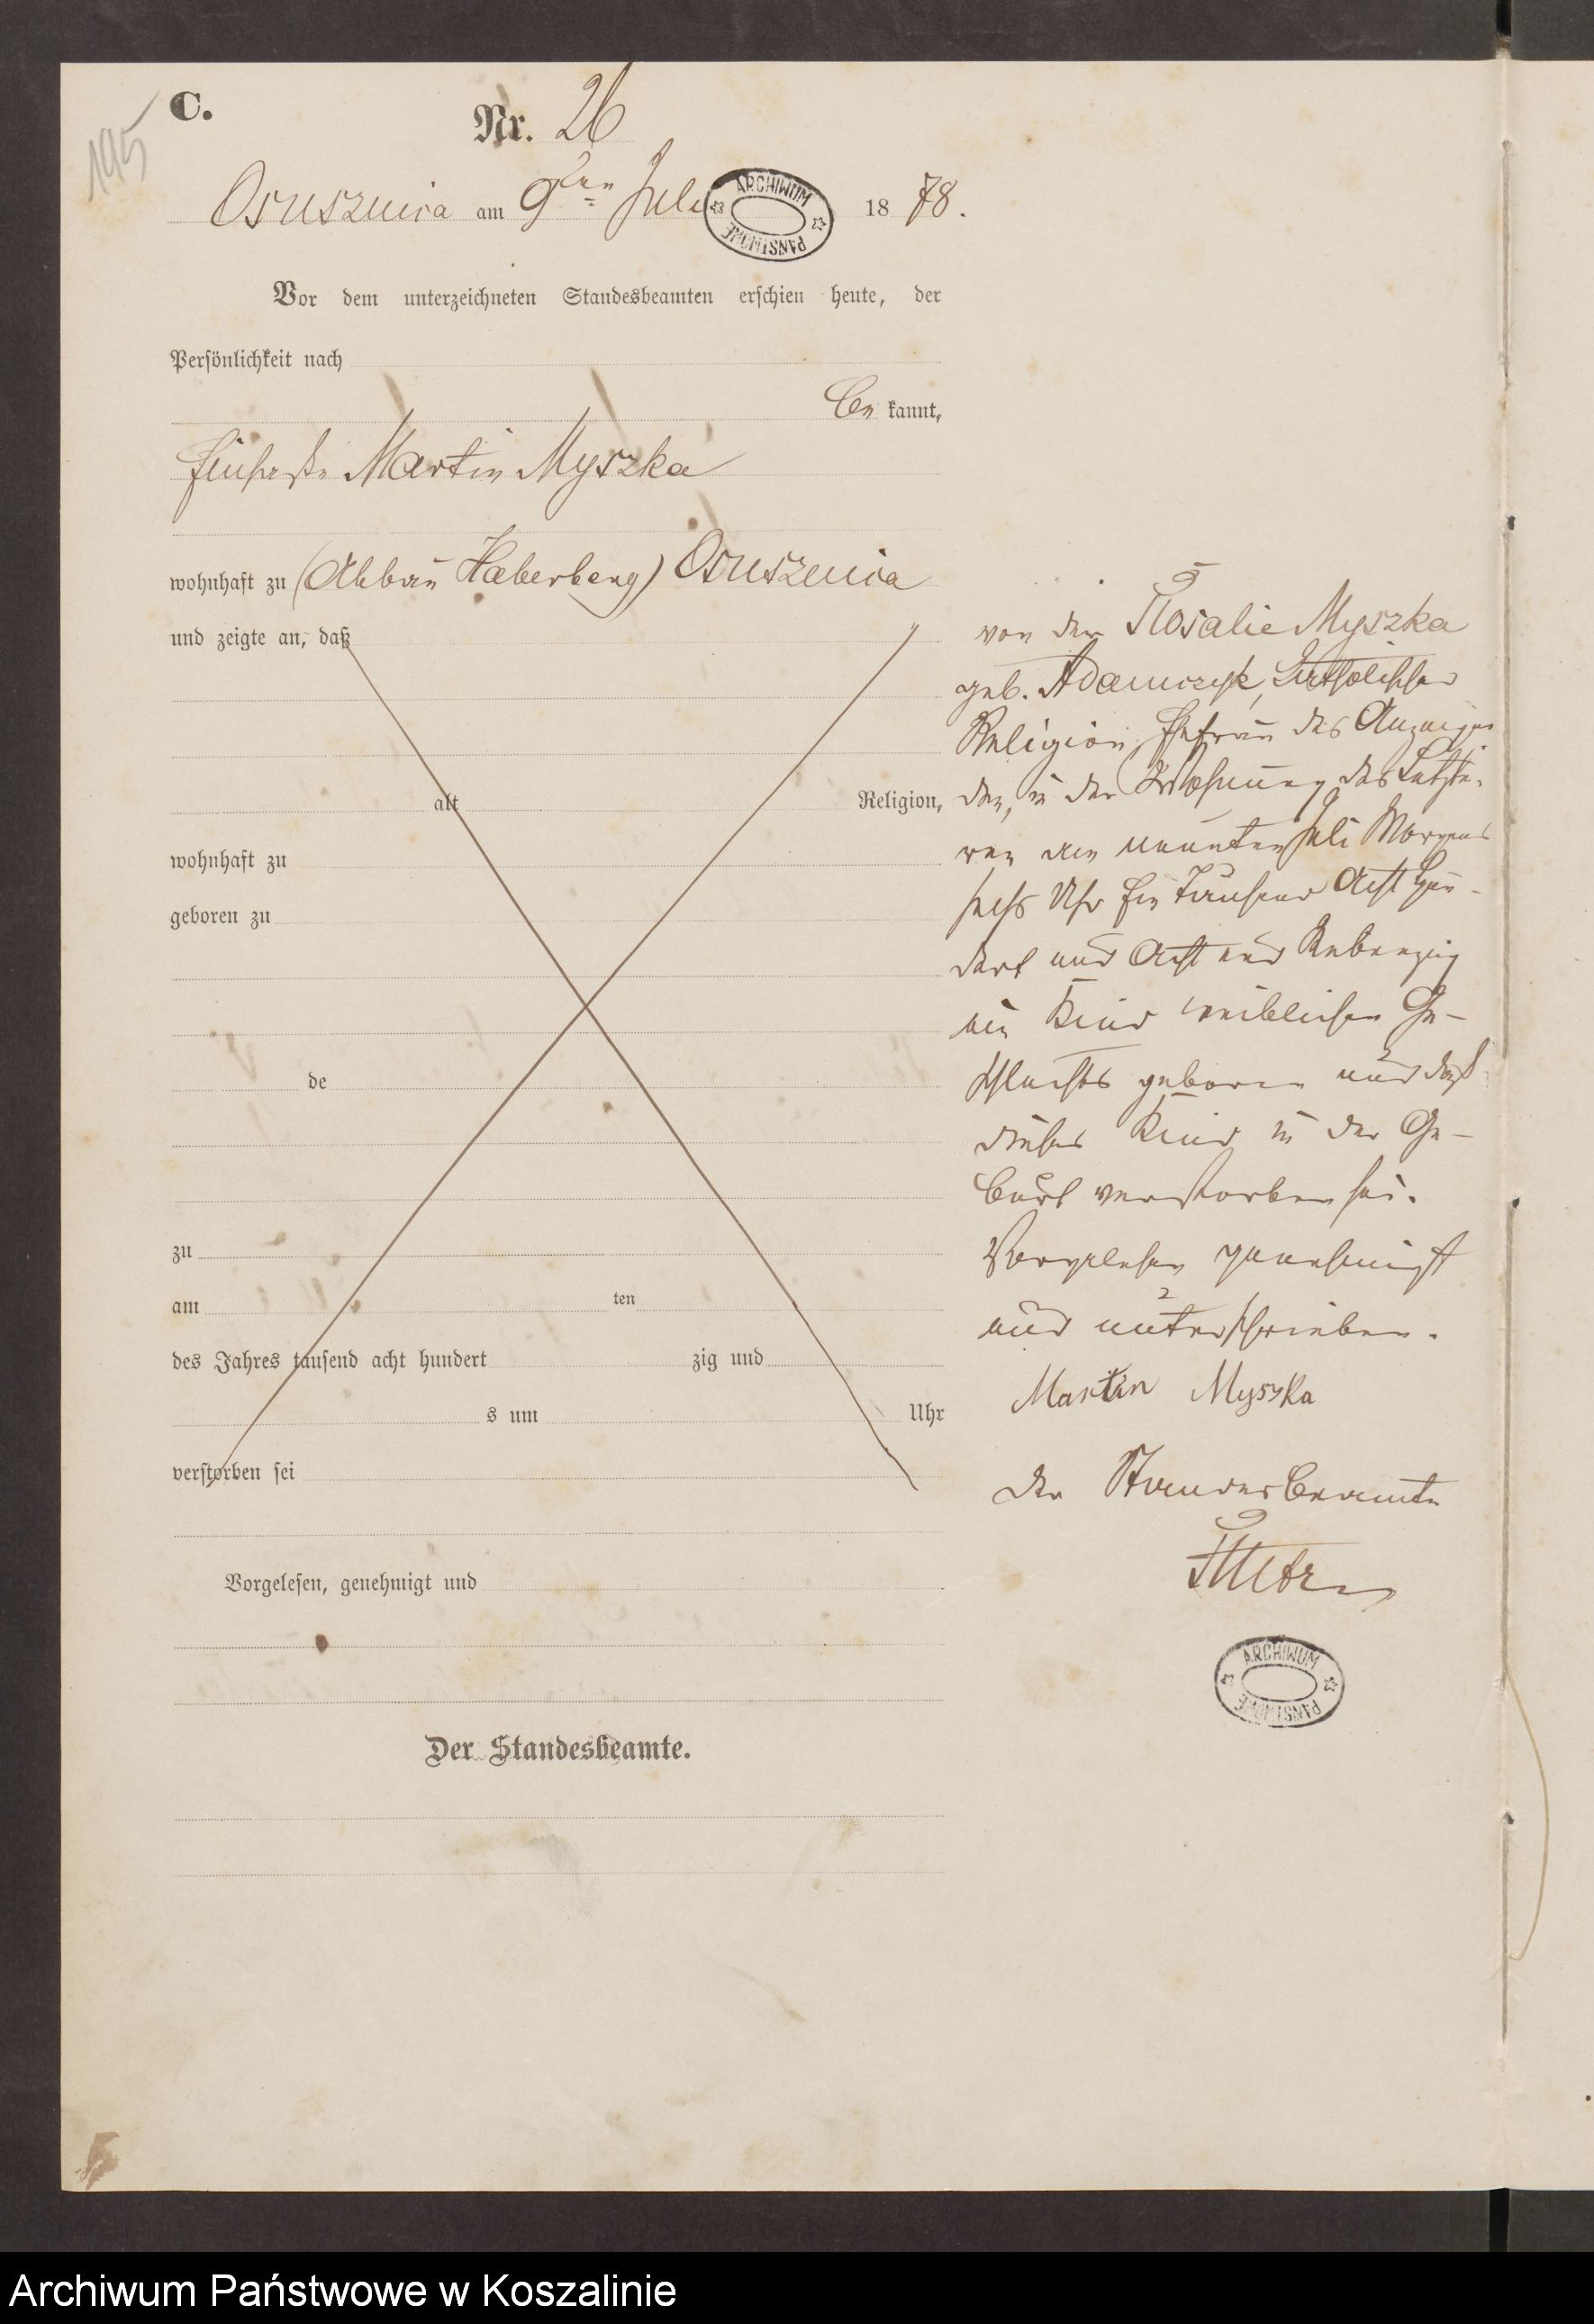 195
C.
Nr. 26
Osusznica am 9ten Juli 1878.
ARCHIWUM PAŃSTWOWE
Vor dem unterzeichneten Standesbeamten erschien heute, der
Persönlichkeit nach
be kannt,
Martin Myszka
wohnhaft zu (Abbau Haberberg) Osusznica
und zeigte an, daß
alt Religion,
wohnhaft zu
geboren zu
de
zu
am ten
des Jahres tausend acht hundert zig und
s um Uhr
verstorben sei
Vorgelesen, genehmigt und
Der Standesbeamte.
von der Rosalie Myszka
geb. Adamczyk, katholischer
Religion, Ehefrau des Anzeigen
den, in der Wohnung des Letzte-
ren am neunten Juli Morgens
sechs Uhr Ein Tausend Acht Hun-
dert und Acht und Siebenzig
ein Kind weiblichen Ge-
schlechts geboren und daß
dieses Kind in der Ge-
burt verstorben sei.
Vorgelesen genehmigt
und unterschrieben.
Martin Myszka
Der Standesbeamte
ARCHIWUM PAŃSTWOWE
Archiwum Państwowe w Koszalinie